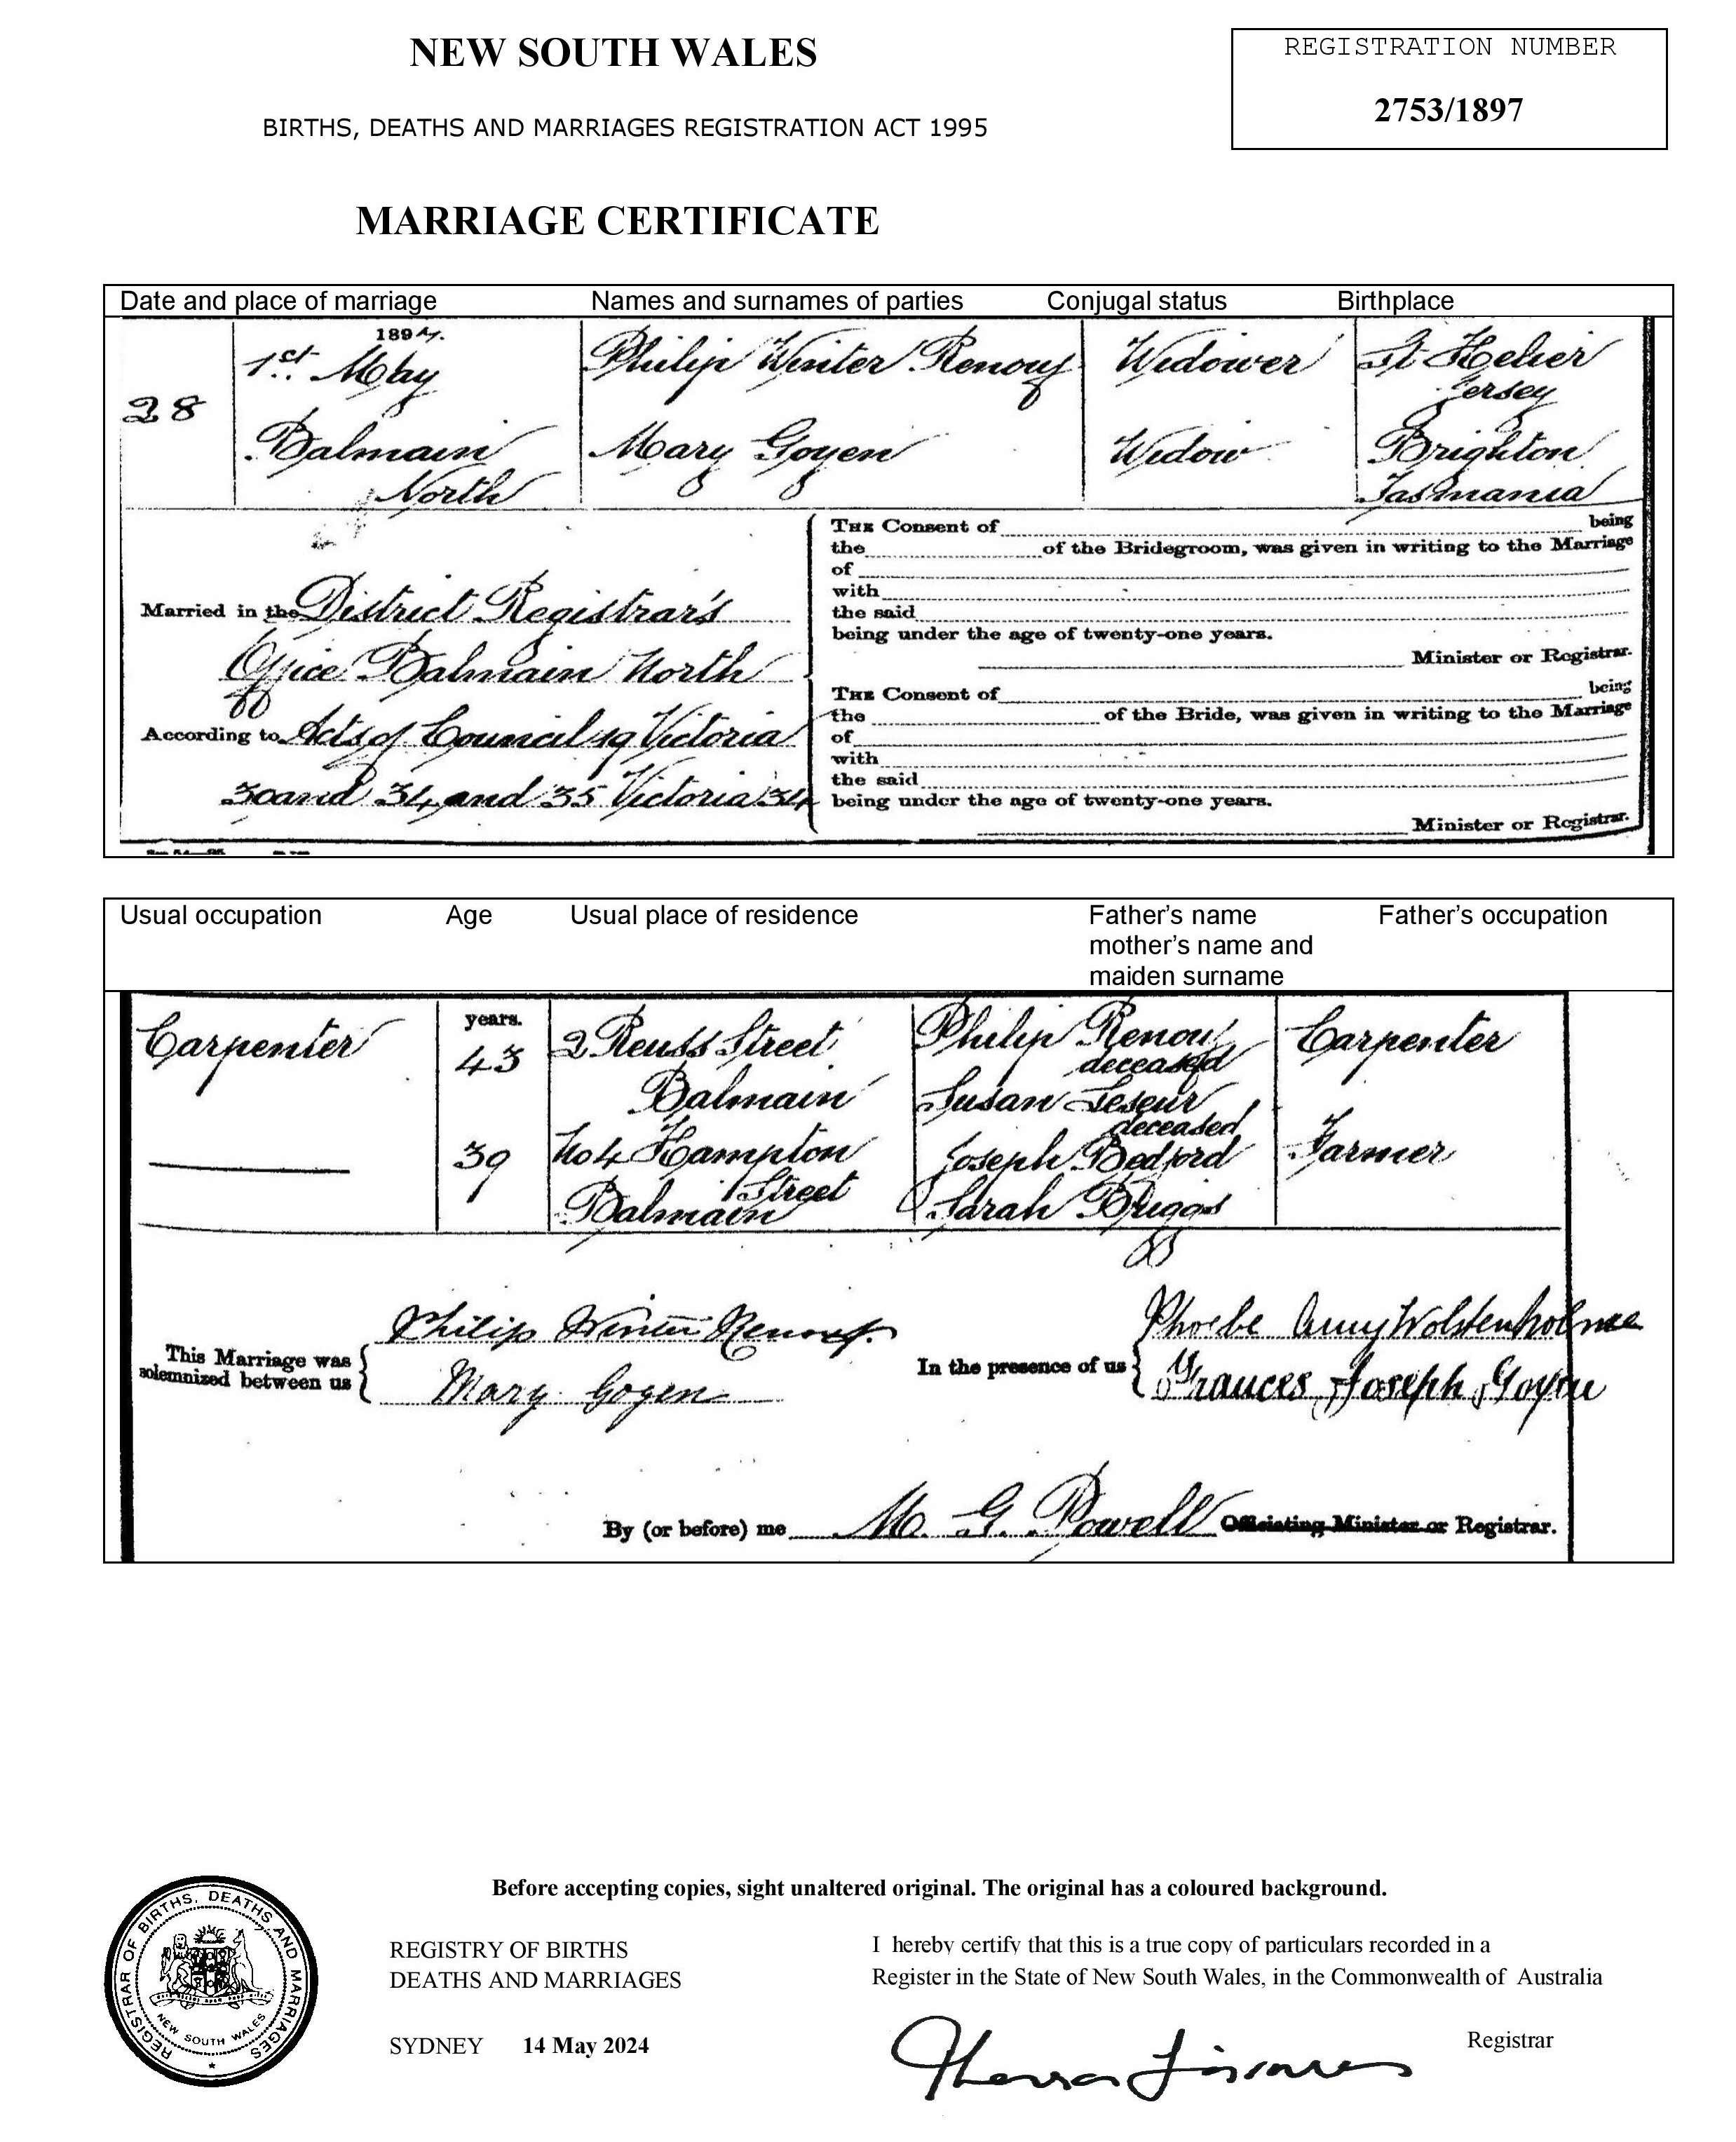 NEW SOUTH WALES
REGISTRATION NUMBER
2753/1897
BIRTHS, DEATHS AND MARRIAGES REGISTRATION ACT 1995
MARRIAGE CERTIFICATE
Date and place of marriage Names and surnames of parties Conjugal status Birthplace
1897.
1st. May Philip Winter Renouf Widower St Helier
Jersey
28
Balmain Mary Goyen Widow Brighton
North Tasmania
THE Consent of being
the of the Bridegroom, was given in writing to the Marriage
of
with
the said
being under the age of twenty-one years.
Minister or Registrar.
Married in the District Registrar's
Office Balmain North
According to Acts of Council 19 Victoria
30 and 34, and 35 Victoria 34
THE Consent of being
the of the Bride, was given in writing to the Marriage
of
with
the said
being under the age of twenty-one years.
Minister or Registrar.
Usual occupation Age Usual place of residence Father's name Father's occupation
mother's name and
maiden surname
years.
Carpenter 43 2 Reuss Street Philip Renouf Carpenter
deceased
Balmain Susan Leseur
deceased
39 No 4 Hampton Joseph Bedford Farmer
Street
Balmain Sarah Briggs
This Marriage was
solemnized between us
Philip Winter Renouf.
Mary Goyen
In the presence of us
Phoebe Amy Wolstenholme
Frances Joseph Goyen
By (or before) me M. G. Powell Officiating Minister or Registrar.
Before accepting copies, sight unaltered original. The original has a coloured background.
REGISTRY OF BIRTHS
DEATHS AND MARRIAGES
SYDNEY 14 May 2024
I hereby certify that this is a true copy of particulars recorded in a
Register in the State of New South Wales, in the Commonwealth of Australia
Registrar
REGISTRAR OF BIRTHS, DEATHS AND MARRIAGES
NEW SOUTH WALES